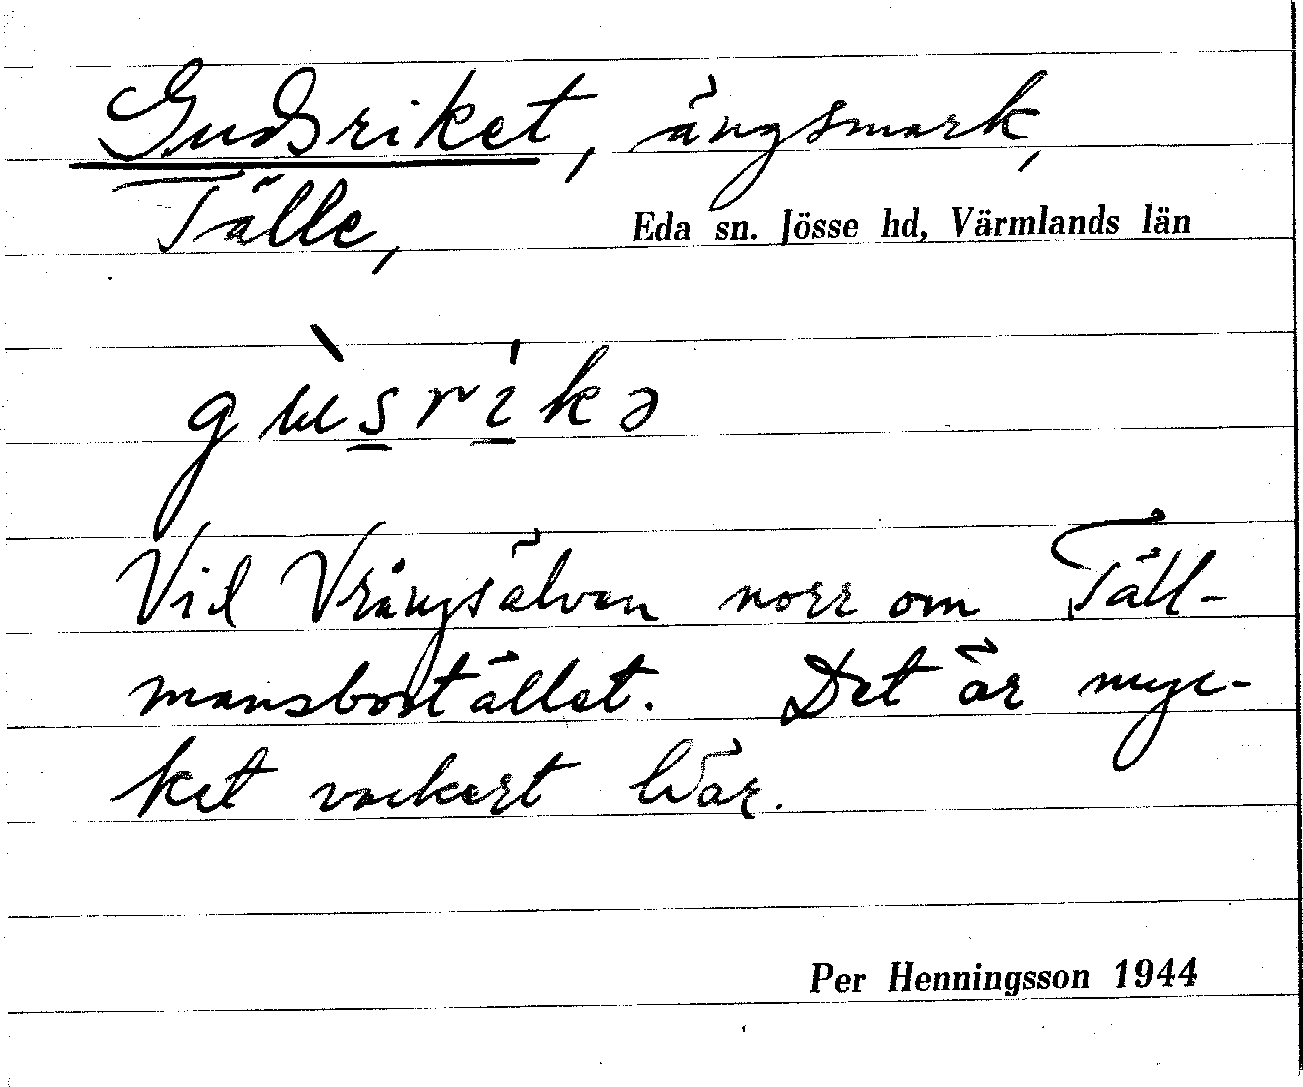 Gudsriket, ängsmark,
Tälle, Eda sn. Jösse hd, Värmlands län
gùsríkə
Vid Vrångsälven norr om Täll-
mansbostället. Det är myc-
ket vackert där.
Per Henningsson 1944